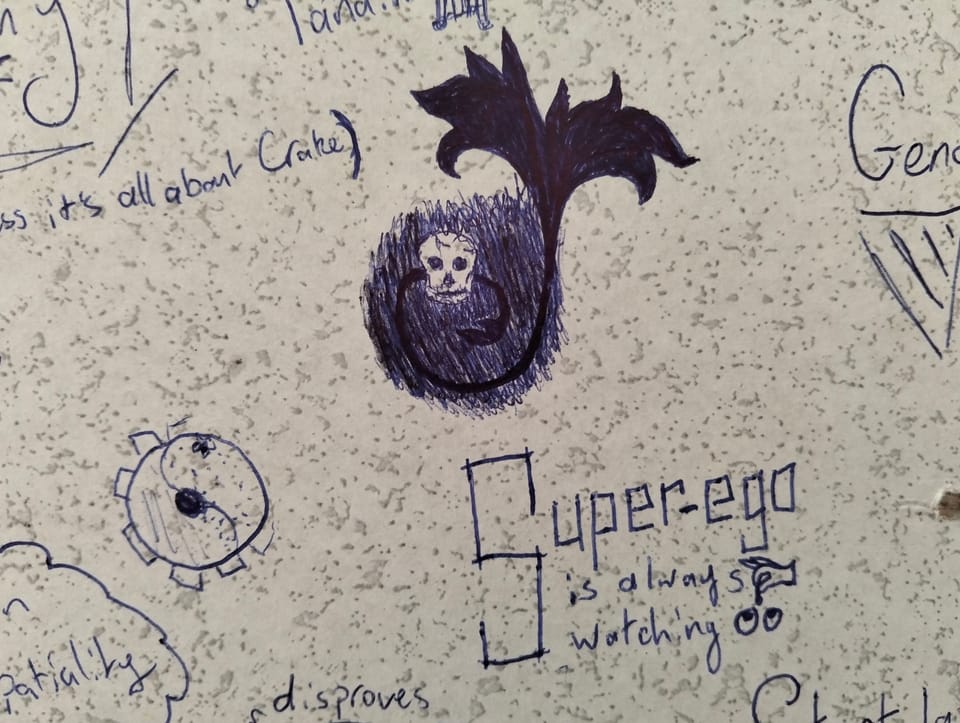 it's all about Crake)
Gen
Super-ego
is always
watching
patiality
disproves